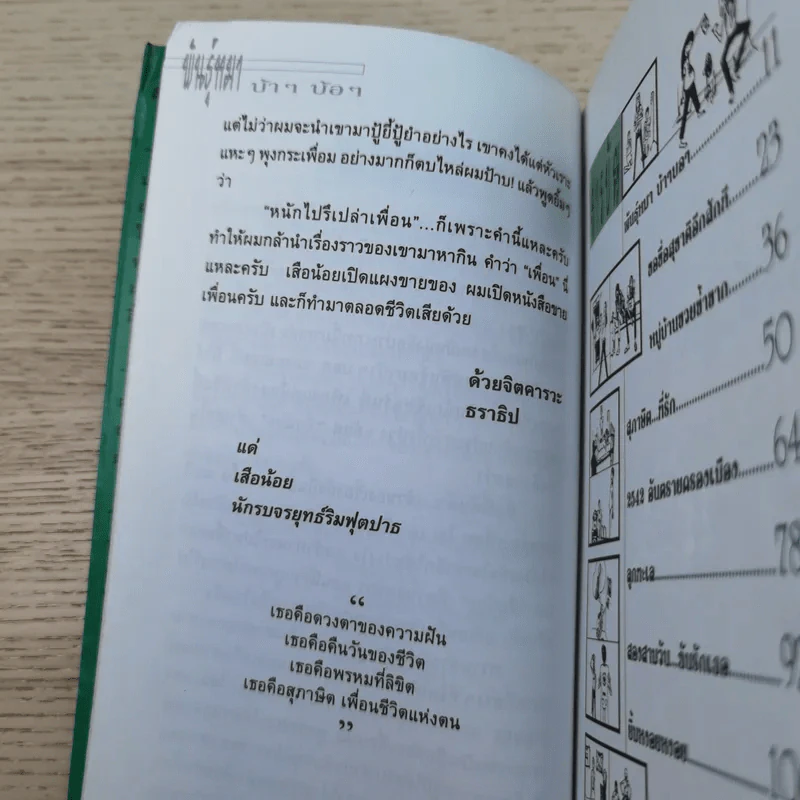 พันธุ์หมา
บ้าๆ บ๊องๆ
แต่ไม่ว่าผมจะนำเขามาปู้ยี้ปู้ยำอย่างไร เขาคงได้แต่หัวเราะ
แหะๆ พุงกระเพื่อม อย่างมากก็ตบไหล่ผมป้าบ! แล้วพูดอิ้มๆ
ว่า
"หนักไปรึเปล่าเพื่อน"...ก็เพราะคำนี้แหละครับ
ทำให้ผมกล้านำเรื่องราวของเขามาหากิน คำว่า "เพื่อน" นี่
แหละครับ เสือน้อยเปิดแผงขายของ ผมเปิดหนังสือขาย
เพื่อนครับ และก็ทำมาตลอดชีวิตเสียด้วย
ด้วยจิตคารวะ
ธราธิป
แด่
เสือน้อย
นักรบจรยุทธ์ริมฟุตปาธ
“
เธอคือดวงตาของความฝัน
เธอคือคืนวันของชีวิต
เธอคือพรหมที่ลิขิต
เธอคือสุภาษิต เพื่อนชีวิตแห่งตน
”
11
พันธุ์หมา บ้าๆบอๆ
23
ขอชื่อสุชาติอีกสักที
36
หมู่บ้านซวยซ้ำซาก
50
สุภาษิต...ที่รัก
64
2542 อันตรายครองเมือง
78
ลูกทะเล
สองสาบวับ...ขับรักเธอ
ยิ้มหงอยหงอย